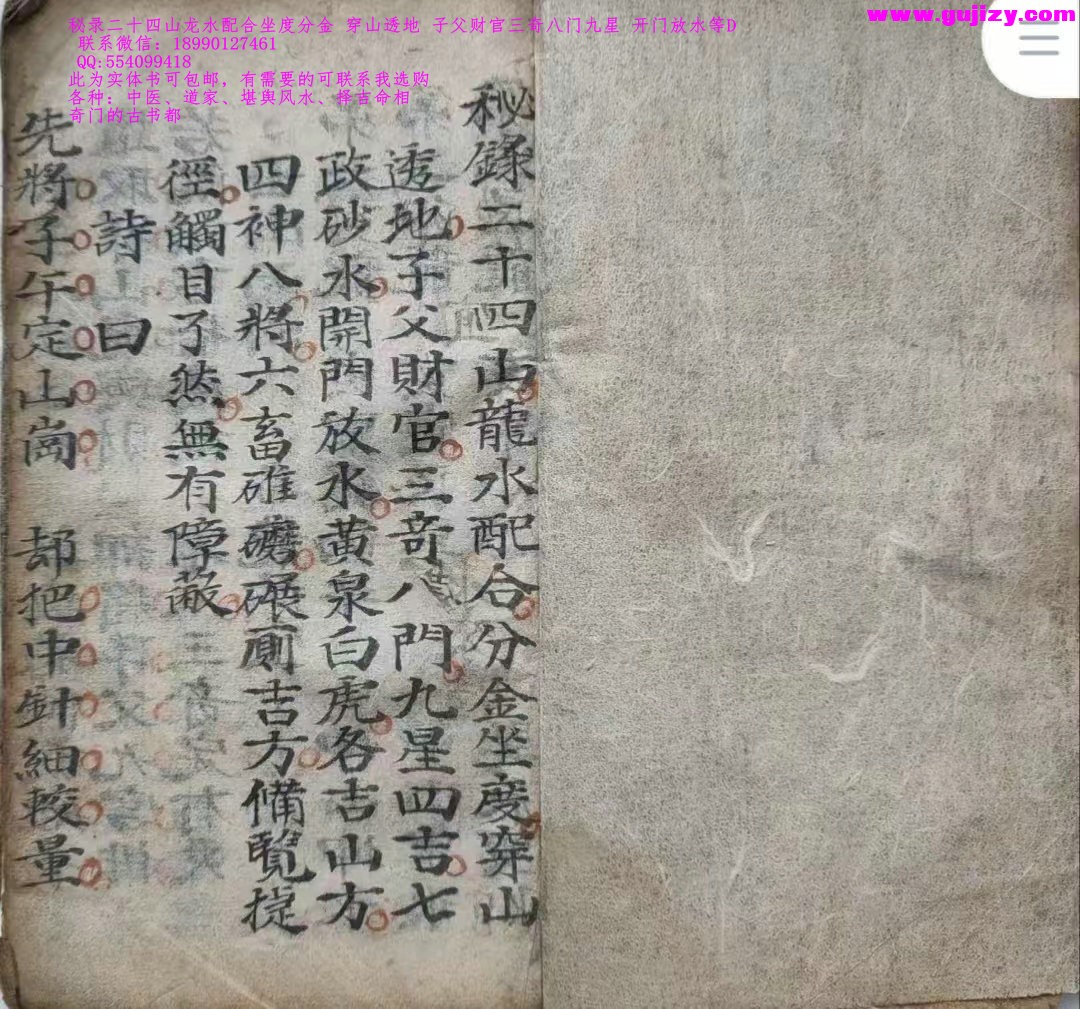 秘录二十四山龙水配合坐度分金 穿山透地 子父财官三奇八门九星 开门放水等D
联系微信：18990127461
QQ:554099418
此为实体书可包邮，有需要的可联系我选购
各种：中医、道家、堪舆风水、择吉命相
奇门的古书都
www.gujizy.com
秘錄二十四山龍水配合分金坐度穿山
透地子父財官三奇八門九星四吉七
政砂水開門放水黃泉白虎各吉山方
四神八將六畜碓磨碾廁吉方備覽捷
徑觸目了然無有障蔽
詩曰
先將子午定山崗 却把中針細較量